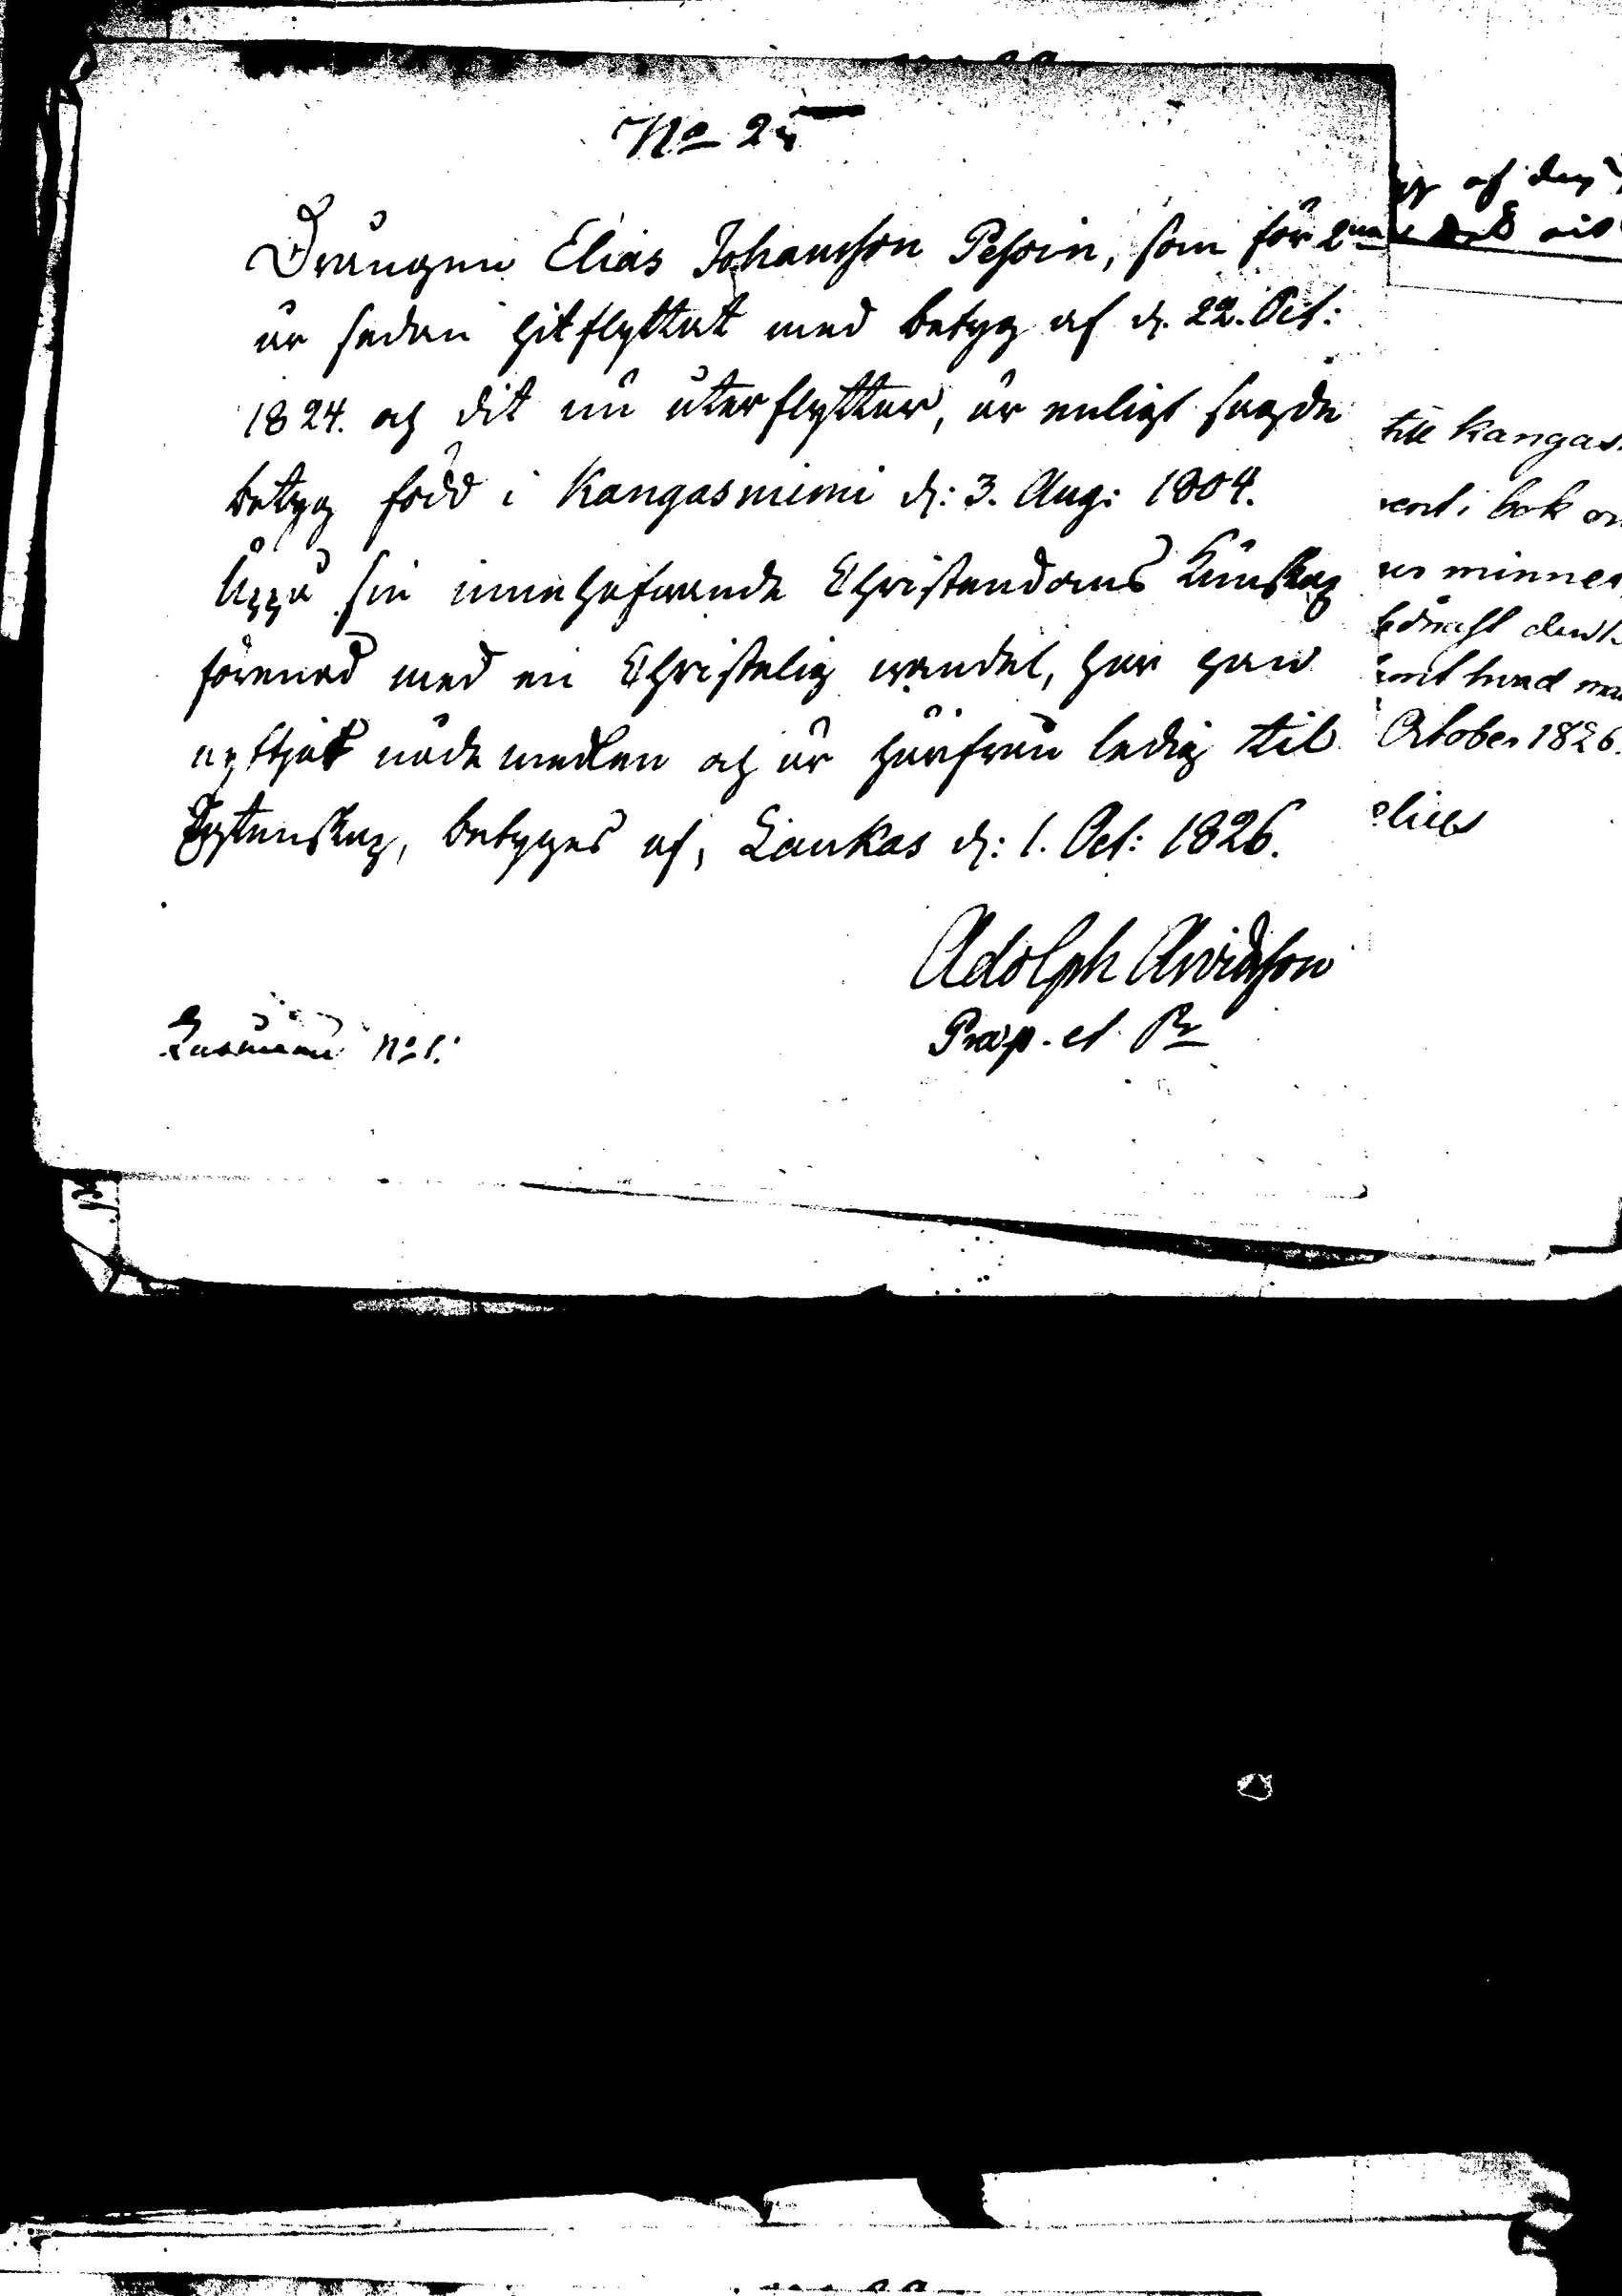 No 25
Drängen Elias Johansson Pesoin, som för 2ne
år sedan hitflyttat med betyg af d. 22. Oct:
1824. och dit nu återflyttar, är enligt sagde
betyg född i Kangasniemi d: 3. Aug: 1804.
Uppå sin innehafwande Christendoms Kunskap
förenad med en Christelig wandel, har han
nyttjat nådemedlen och är härifrån ledig til
Ägtenskap, betyges af, Laukas d: 1. Oct: 1826.
Adolph Arvidsson
Præp. et Pr
No 1.
af den
till Kangas
i bok
minne
hvad
October 1826.